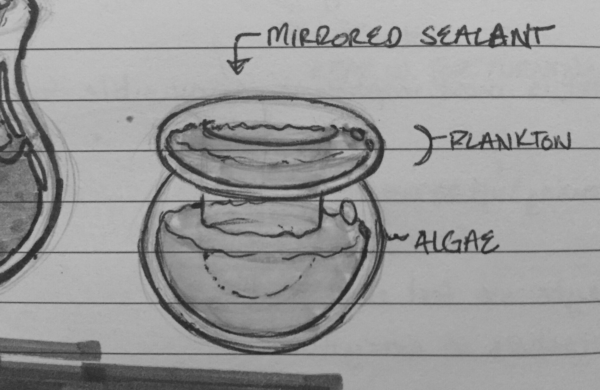 MIRRORED SEALANT
PLANKTON
ALGAE